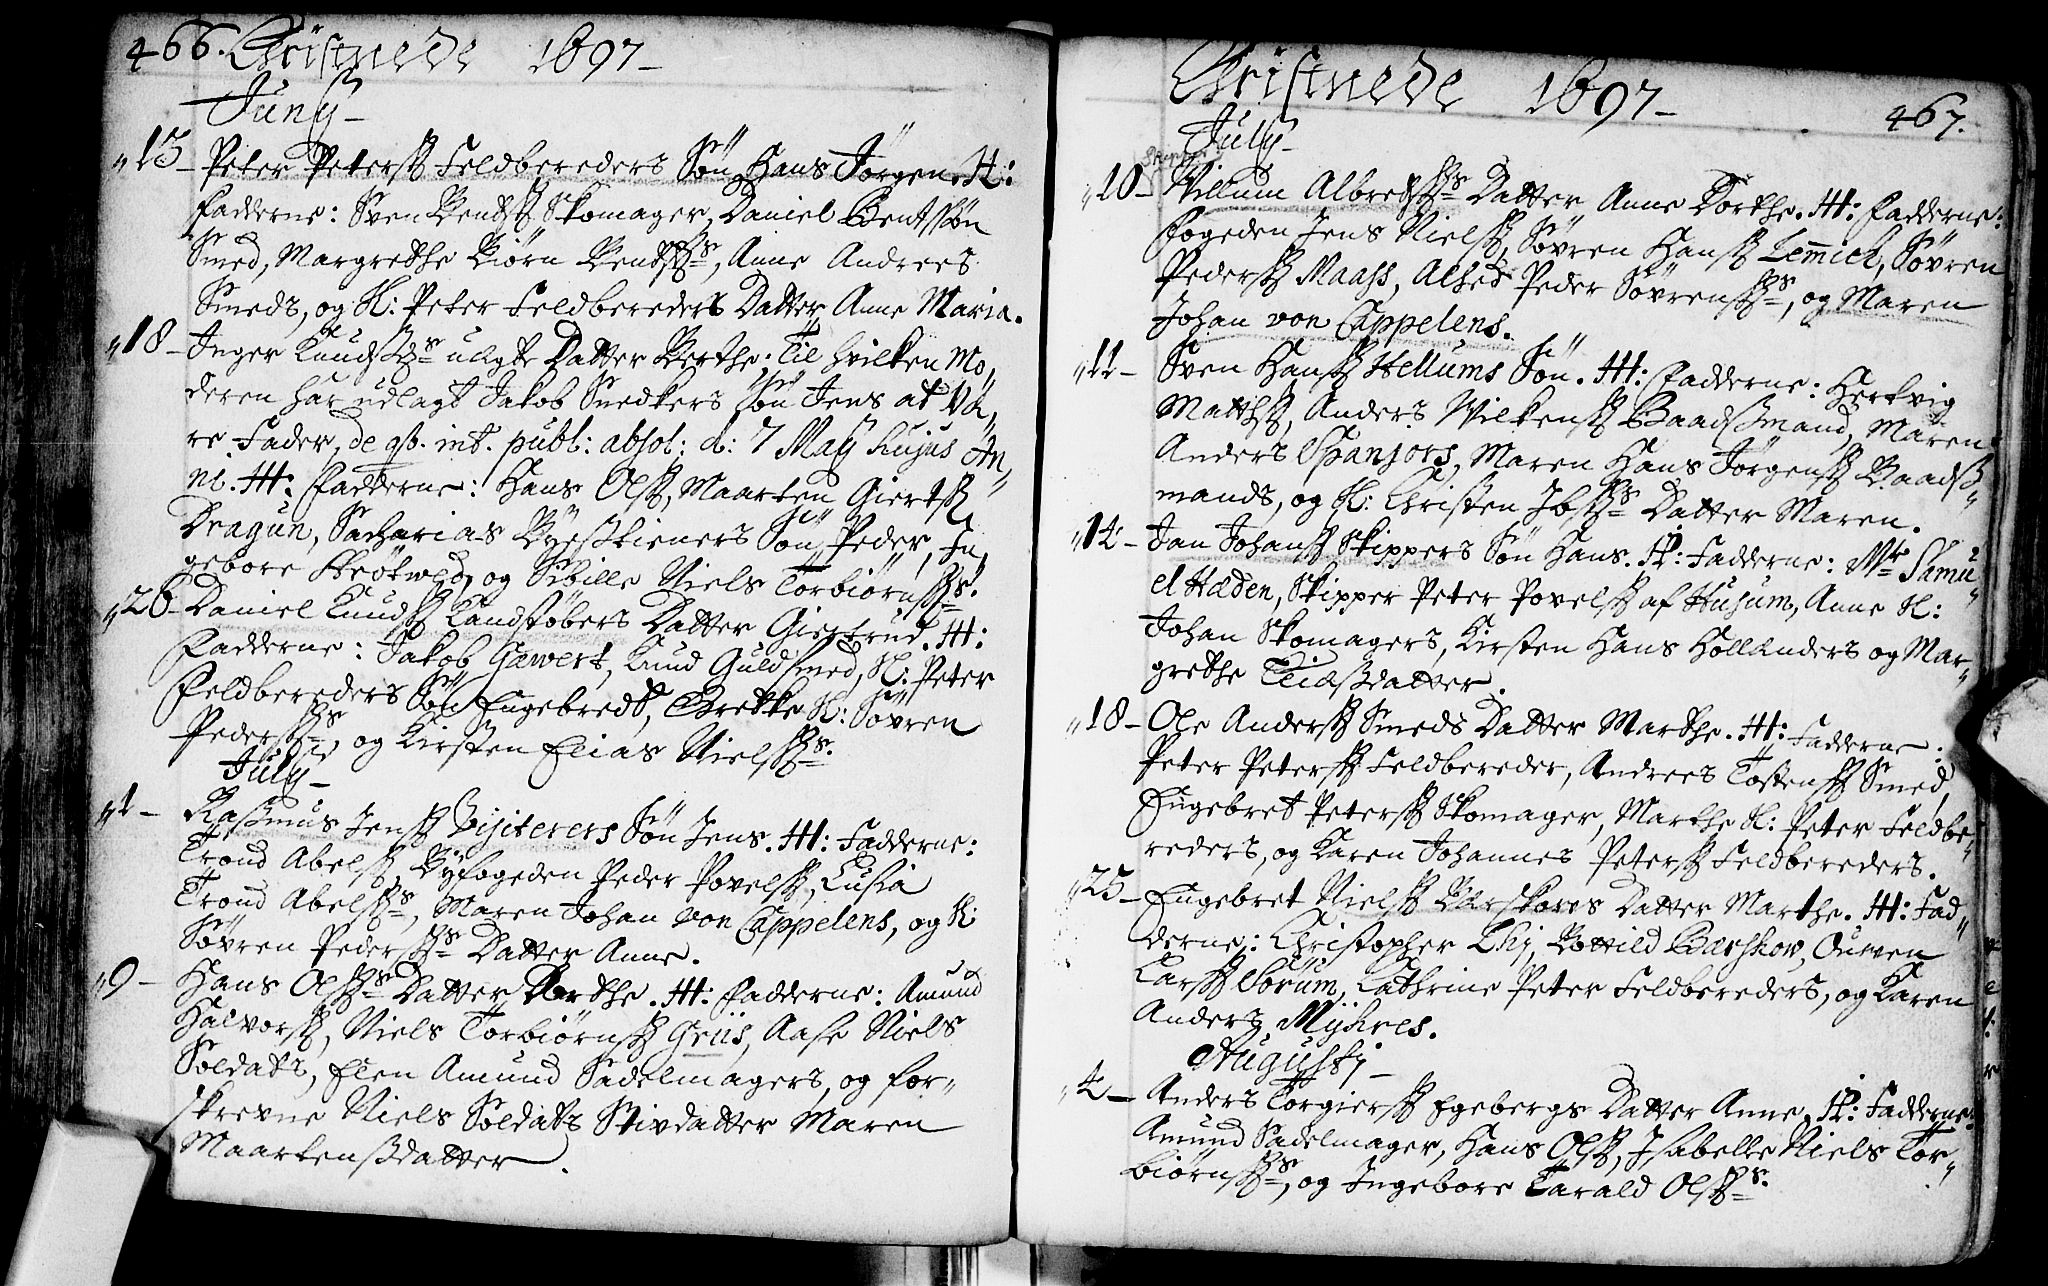 466. Christnede 1697 –
Junÿ –
„ 13 – Peter Peterss: Feldbereders Søn Hans Jørgen. H:
Fadderne: Sven Bentss: Skomager, Daniel Bentssøn
Smed, Margrethe Biørn Bentss:s, Anne Andrees
Smeds, og H: Peter Feldbereders Datter Anne Maria.
„ 18 – Inger Knudsd:s uægte Datter Berthe; Til hvilken Mo,
deren har udlagt Jakob Snedkers Søn Jens at Væ,
re Fader, de qb. int. publ: absol: d: 7 Maÿ hujus An,
ni. H: Fadderne: Hans Olss:, Maarten Giertss:
Dragun, Sacharias Bÿesskieners Søn Peder, In,
gebore, og Sibille Niels Torbiørnss:s.
„ 20 – Daniel Knudss: Kandstøbers Datter Giertrud. H:
Fadderne: Jakob Gewert, Knud Guldsmed, H: Peter
Feldbereders Søn Engebredt, Grethe H: Søvren
Pederss:s, og Kirsten Elias Nielss:s.
Julÿ –
„ 1 – Rassmus Jenss: Visiterers Søn Jens. H: Fadderne:
Trond Abelss:, Bÿfogeden Peder Povelss:, Lusia
Trond Abelss:s, Maren Johan von Cappelens, og H:
Søvren Pederss:s Datter Anne.
„ 9 – Hans Olss:s Datter Dorthe. H: Fadderne: Amund
Halvorss:, Niels Torbiørnss: Griis, Aase Niels
Soldats, Elen Amund Sadelmagers, og for„
skrevne Niels Soldats Stivdatter Maren
Maartenssdatter.
Christnede 1697 – 467.
Julÿ –
Skipper
„ 10 – Willum Albretss:s Datter Anne Dorthe. H: Fadderne:
Fogeden Jens Nielss:, Søvren Hanss: Lemich, Søvren
Pederss: Maass, Alhed Peder Søvrenss:s, og Maren
Johan von Cappelens.
„ 11 – Sven Hanss: Hellums Søn. H: Fadderne: Hertvig
Matthss:, Anders Wilkenss: Baadssmand, Maren
Anders Spanjors, Maren Hans Jørgenss: Baadss„
mands, og H: Christen Ibss:s Datter Maren.
„ 14 – Jan Johanss: Skippers Søn Hans. H: Fadderne: Mr Samu„
el Hæden, Skipper Peter Povelss: af Husum, Anne H:
Johan Skomagers, Kirsten Hans Hollænders og Mar„
grethe Eliæssdatter.
„ 18 – Ole Anderss: Smeds Datter Marthe. H: Fadderne:
Peter Peterss: Feldbereder, Andrees Tostenss: Smed,
Engebret Peterss: Skomager, Marthe H: Peter Feldbe„
reders, og Karen Johannes Peterss: Feldbereders.
„ 25 – Engebret Nielss: Barskovs Datter Marthe. H: Fad„
derne: Christopher Thj, Bottild Barskow, Ouwen
Larss: Sørum, Cathrine Peter Feldbereders, og Karen
Anders Mÿhres.
Augustj –
„ 4 – Anders Torgierss: Egebergs Datter Anne. H: Fadderne:
Amund Sadelmager, Hans Olss:, Isabelle Niels Tor„
biørnss:s, og Ingebore Tarald Olss:s.